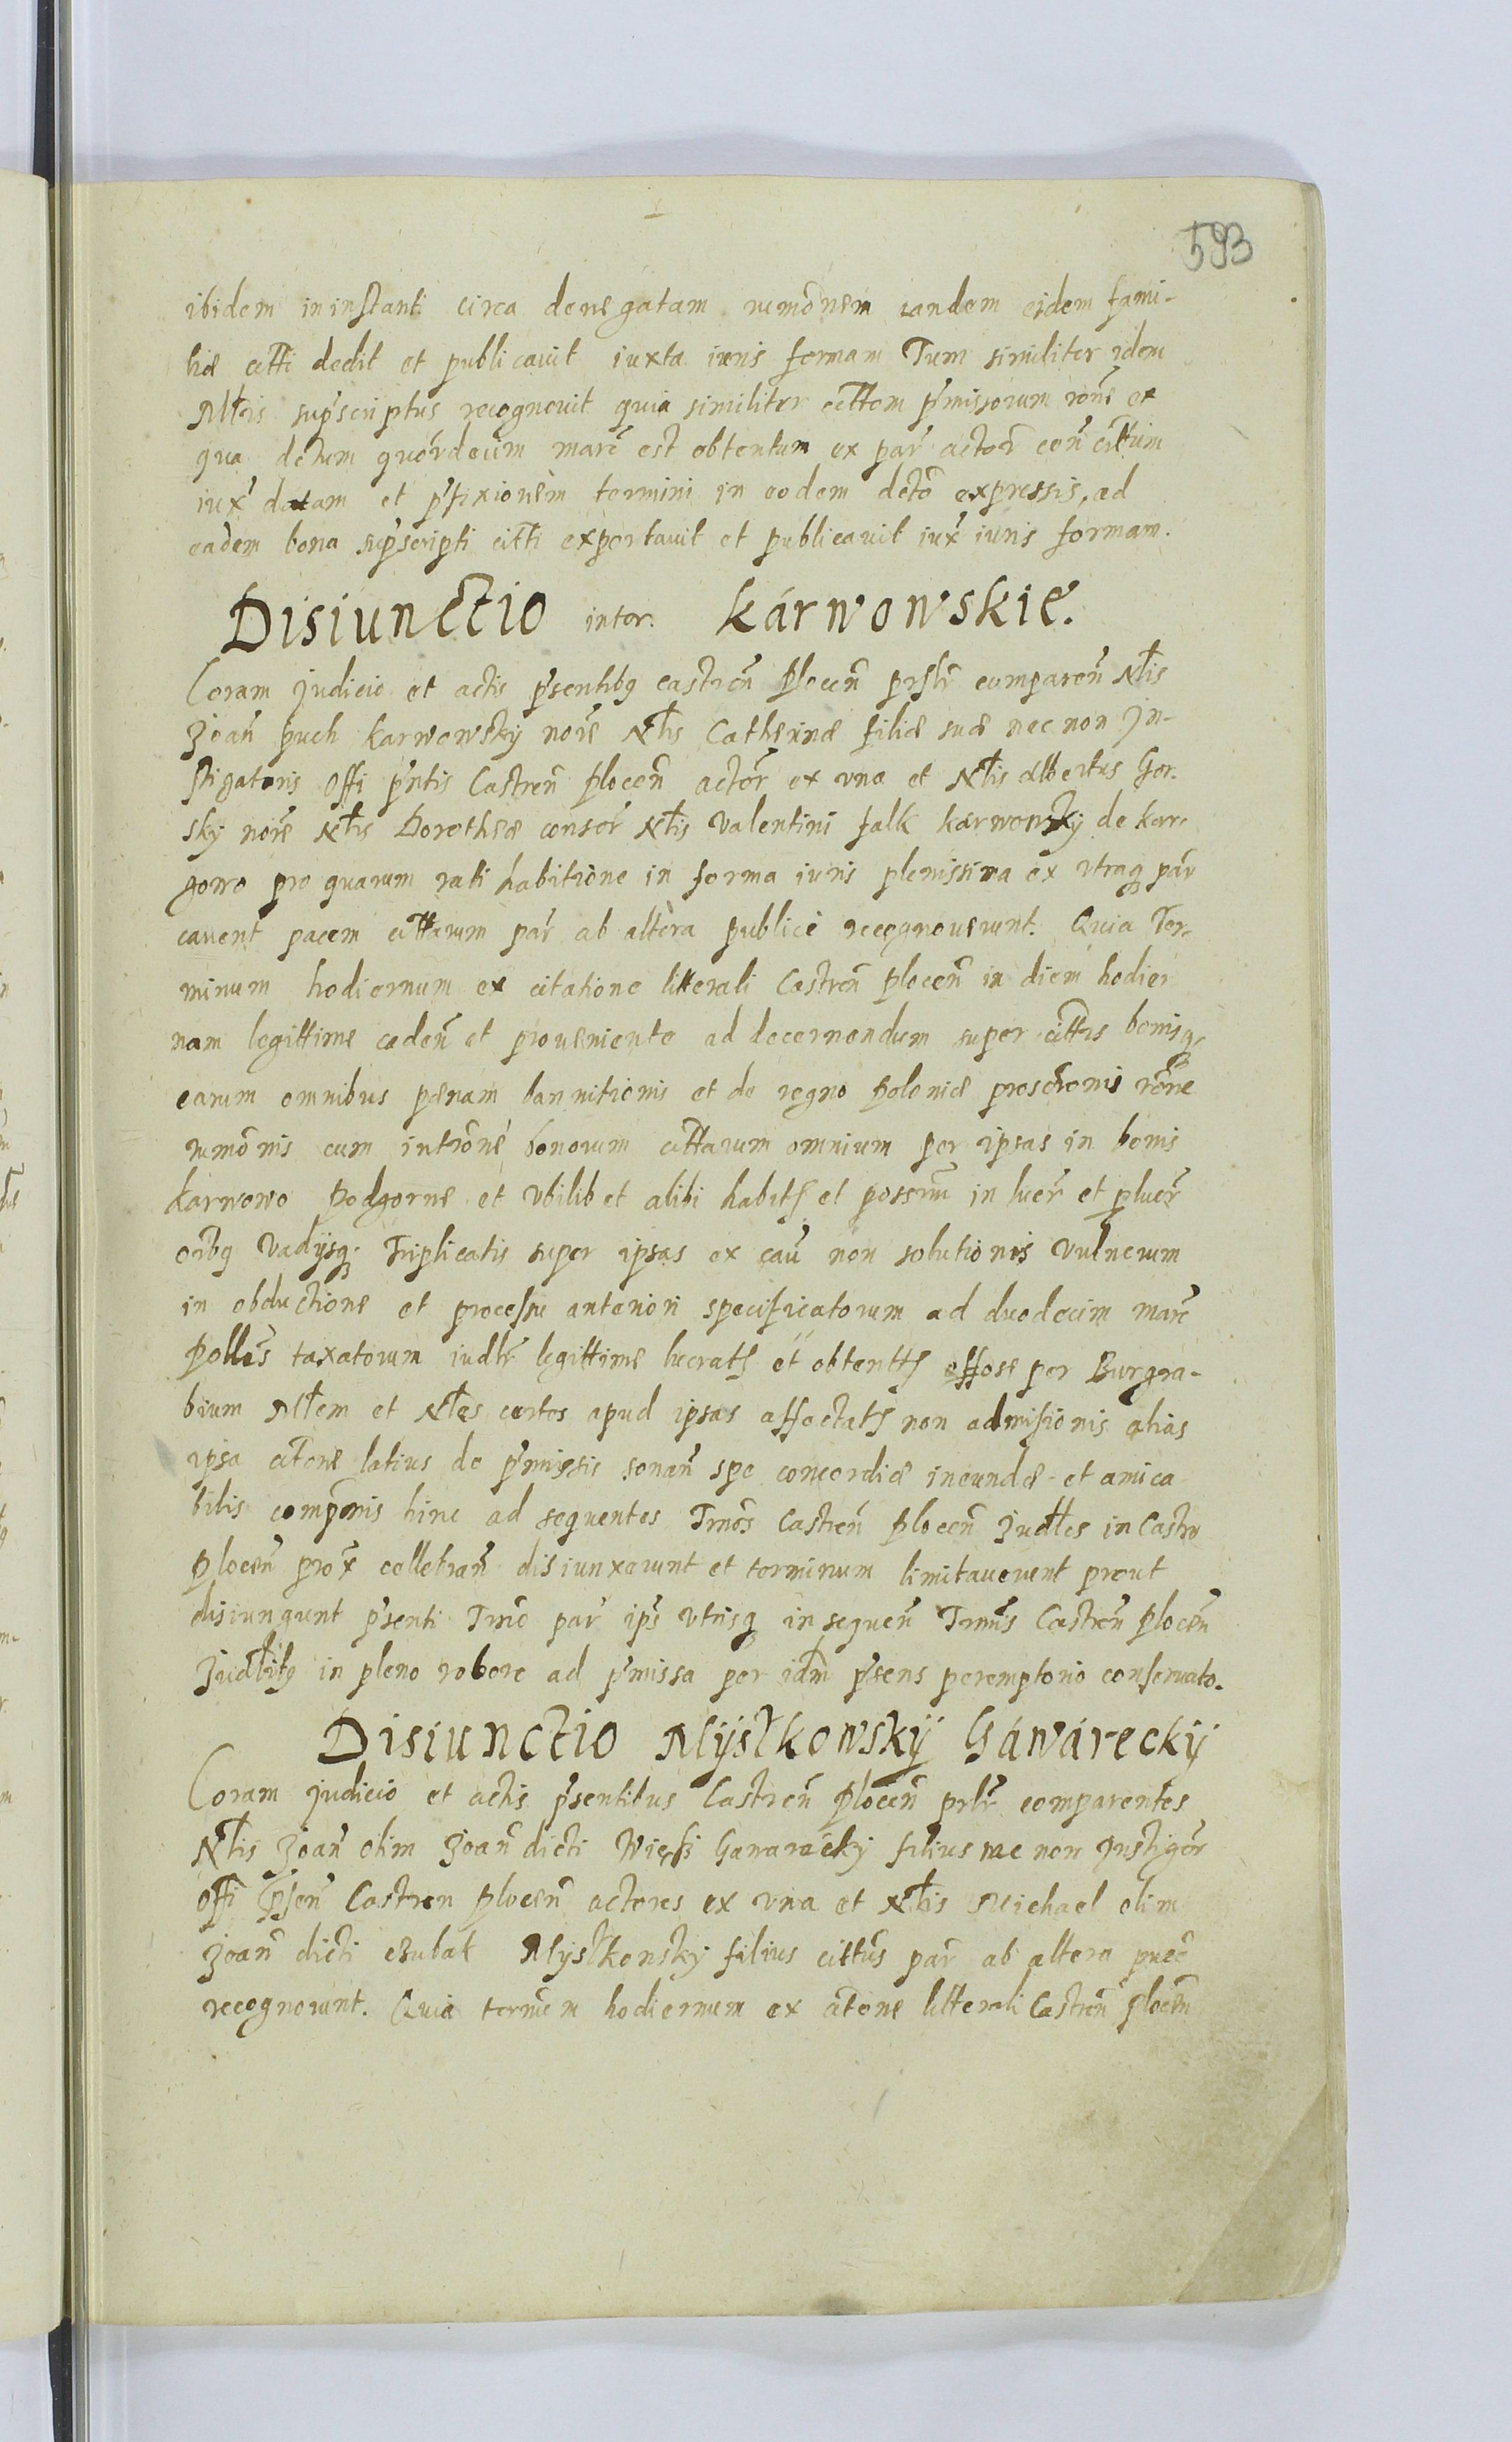 593
ibidem in instanti circa denegatam rumõnem eandem eidem fami-
liæ citti dedit et publicavit iuxta iuris formam Tum similiter idem
Mtris supscriptus recognovit quia similiter cittem pmissorum rone ex
qua detum quordecim marc est obtentum ex par actor con
iux datam et pfixionem termini in eodem decto expressis, ad
eadem bona supscripti citti exportavit et publicavit iux iuris formam.
Disiunctio inter. Kárwowskie.
Coram judicio et actis psentibq castren plocen prslr comparen Ntlis
Joan puch Karwowsky noie Ntlis Catherinæ filiæ suæ nec non in-
stigatoris offi pntis Castren plocen actor ex una et Ntlis Albertus Gor-
sky noie Ntlis Dorotheæ consor Ntlis Valentini falk karwowsky de kar-
gowo pro quarum rati habitione in forma iuris plenissima ex utraq par
cavent pacem cittarum par ab altera publice recognoverunt. Quia Ter-
minum hodiernum ex citatione litterali Castren plocen in diem hodier
nam legittime caden et proveniente ad decernendum super cittis bonisq
earum omnibus pænam bannitionis et de regno poloniæ proscronis rone
rumonis cum introne bonorum cittarum omnium per ipsas in bonis
karwowo podgorne et ubilibet alibi habits et possrum in lucr et plucr
oibq vadijsq Triplicatis super ipsas ex cau non solutionis vulnerum
in obductione et processu anteriori specificatorum ad duodecim marc
pollis taxatorum iudlr legittime lucrats et obtentts offose per Burgra-
bium Mtem et Ntles certos apud ipsas affectats non admisionis alias
ipsa citone latius de pmissis sonan spe concordiæ ineundæ et amica
bilis componis hinc ad sequentes Tmos Castren plocen Judles in Castro
plocen prox celletran disiunxerunt et terminum limitaverunt prout
disiungunt psenti Tmo par ips utrisq in sequen Tmis Castren plocen
Judlibq in pleno robore ad pmissa per idm psens peremptorio conservato.
Disiunctio Mÿstkowskÿ Gáwáreckÿ
Coram judicio et actis psentibus Castren plocen prlr comparentes
Ntlis Joan olim Joan dicti Więksi Gawarecky filius nec non Instigor
offi psen Castren plocen actores ex una et Ntlis Michael olim
Joan dicti csubak Mystkowsky filius cittus par ab altera puce
recognorunt. Quia termin hodiernum ex atone litterali Castren plocen